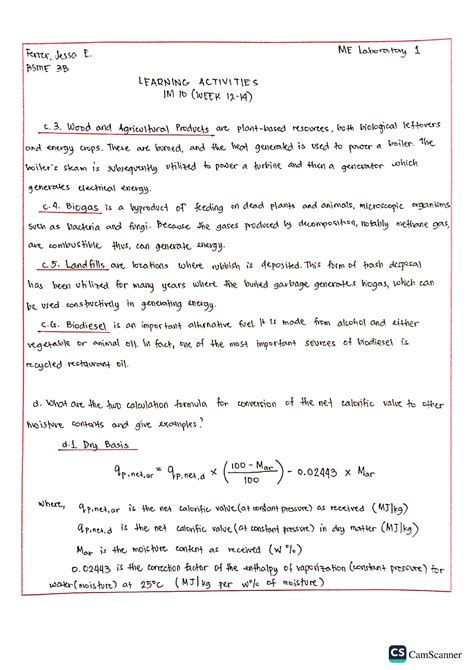 Ferrer, Jessa E. ME Laboratory 1
BSME 3B
LEARNING ACTIVITIES
IM 10 (WEEK 12-14)
c.3. Wood and Agricultural Products are plant-based resources, both biological leftovers
and energy crops. These are burned, and the heat generated is used to power a boiler. The
boiler's steam is subsequently utilized to power a turbine and then a generator which
generates electrical energy.
c.4. Biogas is a byproduct of feeding on dead plants and animals, microscopic organisms
such as bacteria and fungi. Because the gases produced by decomposition, notably methane gas,
are combustible thus, can generate energy.
c.5. Landfills are locations where rubbish is deposited. This form of trash disposal
has been utilized for many years where the buried garbage generates biogas, which can
be used constructively in generating energy.
c.6. Biodiesel is an important alternative fuel. It is made from alcohol and either
vegetable or animal oil. In fact, one of the most important sources of biodiesel is
recycled restaurant oil.
d. What are the two calculation formula for conversion of the net calorific value to other
moisture contents and give examples?
d.1 Dry Basis
qp,net,ar = qp,net,d × (100 - Mar / 100) - 0.02443 × Mar
Where, qp,net,ar is the net calorific value (at constant pressure) as received (MJ/kg)
qp,net,d is the net calorific value (at constant pressure) in dry matter (MJ/kg)
Mar is the moisture content as received (w%)
0.02443 is the correction factor of the enthalpy of vaporization (constant pressure) for
water (moisture) at 25°C (MJ/kg per w% of moisture)
CS CamScanner